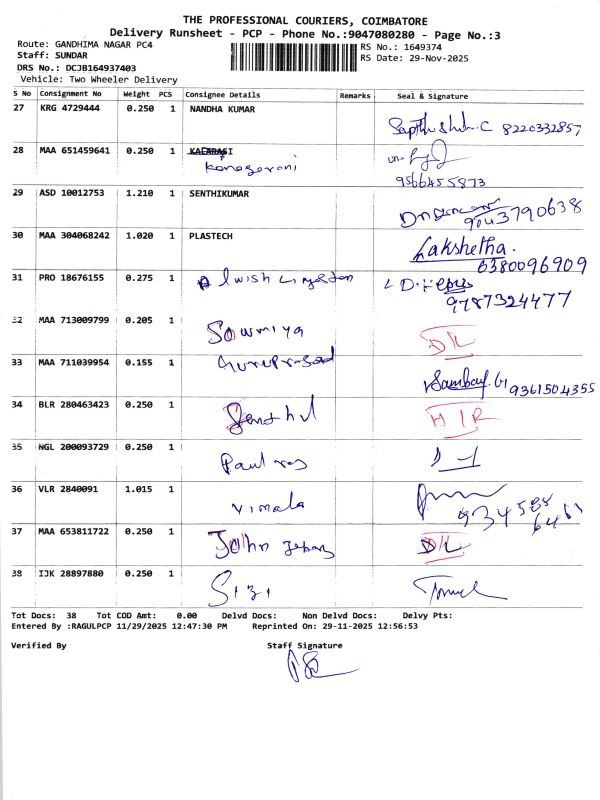 THE PROFESSIONAL COURIERS, COIMBATORE
Delivery Runsheet - PCP - Phone No.:9047080280 - Page No.:3
Route: GANDHIMA NAGAR PC4
RS No.: 1649374
Staff: SUNDAR
RS Date: 29-Nov-2025
DRS No.: DCJB164937403
Vehicle: Two Wheeler Delivery
S No Consignment No Weight PCS Consignee Details Remarks Seal & Signature
27 KRG 4729444 0.250 1 NANDHA KUMAR
8220332857
28 MAA 651459641 0.250 1 KALARASI
Kanagarani
9566455873
29 ASD 10012753 1.210 1 SENTHIKUMAR
9043790638
30 MAA 304068242 1.020 1 PLASTECH Lakshetha.
6380096909
31 PRO 18676155 0.275 1
9787324477
32 MAA 713009799 0.205 1
Sowmiya DL
33 MAA 711039954 0.155 1 Guruprasad
9361504355
34 BLR 280463423 0.250 1
Senthil HIR
35 NGL 200093729 0.250 1
Paulraj
36 VLR 2840091 1.015 1
Vimala
37 MAA 653811722 0.250 1
John DL
38 IJK 28897880 0.250 1
Sizi
Tot Docs: 38 Tot COD Amt: 0.00 Delvd Docs: Non Delvd Docs: Delvy Pts:
Entered By :RAGULPCP 11/29/2025 12:47:30 PM Reprinted On: 29-11-2025 12:56:53
Verified By Staff Signature